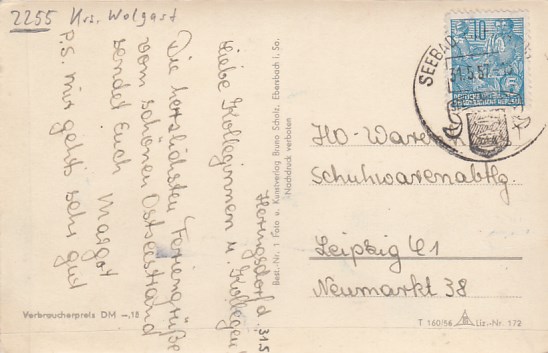 2255 Krs. Wolgast
Heringsdorf d. 31.5
Liebe Kolleginnen u. Kollegen!
Die herzlichsten Feriengrüße
vom schönen Ostseestrand
sendet Euch Margot
P.S. mir geht's sehr gut
Verbraucherpreis DM –,18
Best.-Nr. 1 Foto u. Kunstverlag Bruno Scholz, Ebersbach i. Sa.
Nachdruck verboten
SEEBAD
31.5.57
10
DEUTSCHE
DEMOKRATISCHE REPUBLIK
HO-Waren
Schuhwarenabtlg.
Leipzig C1
Neumarkt 38
T 160/56 Liz.-Nr. 172